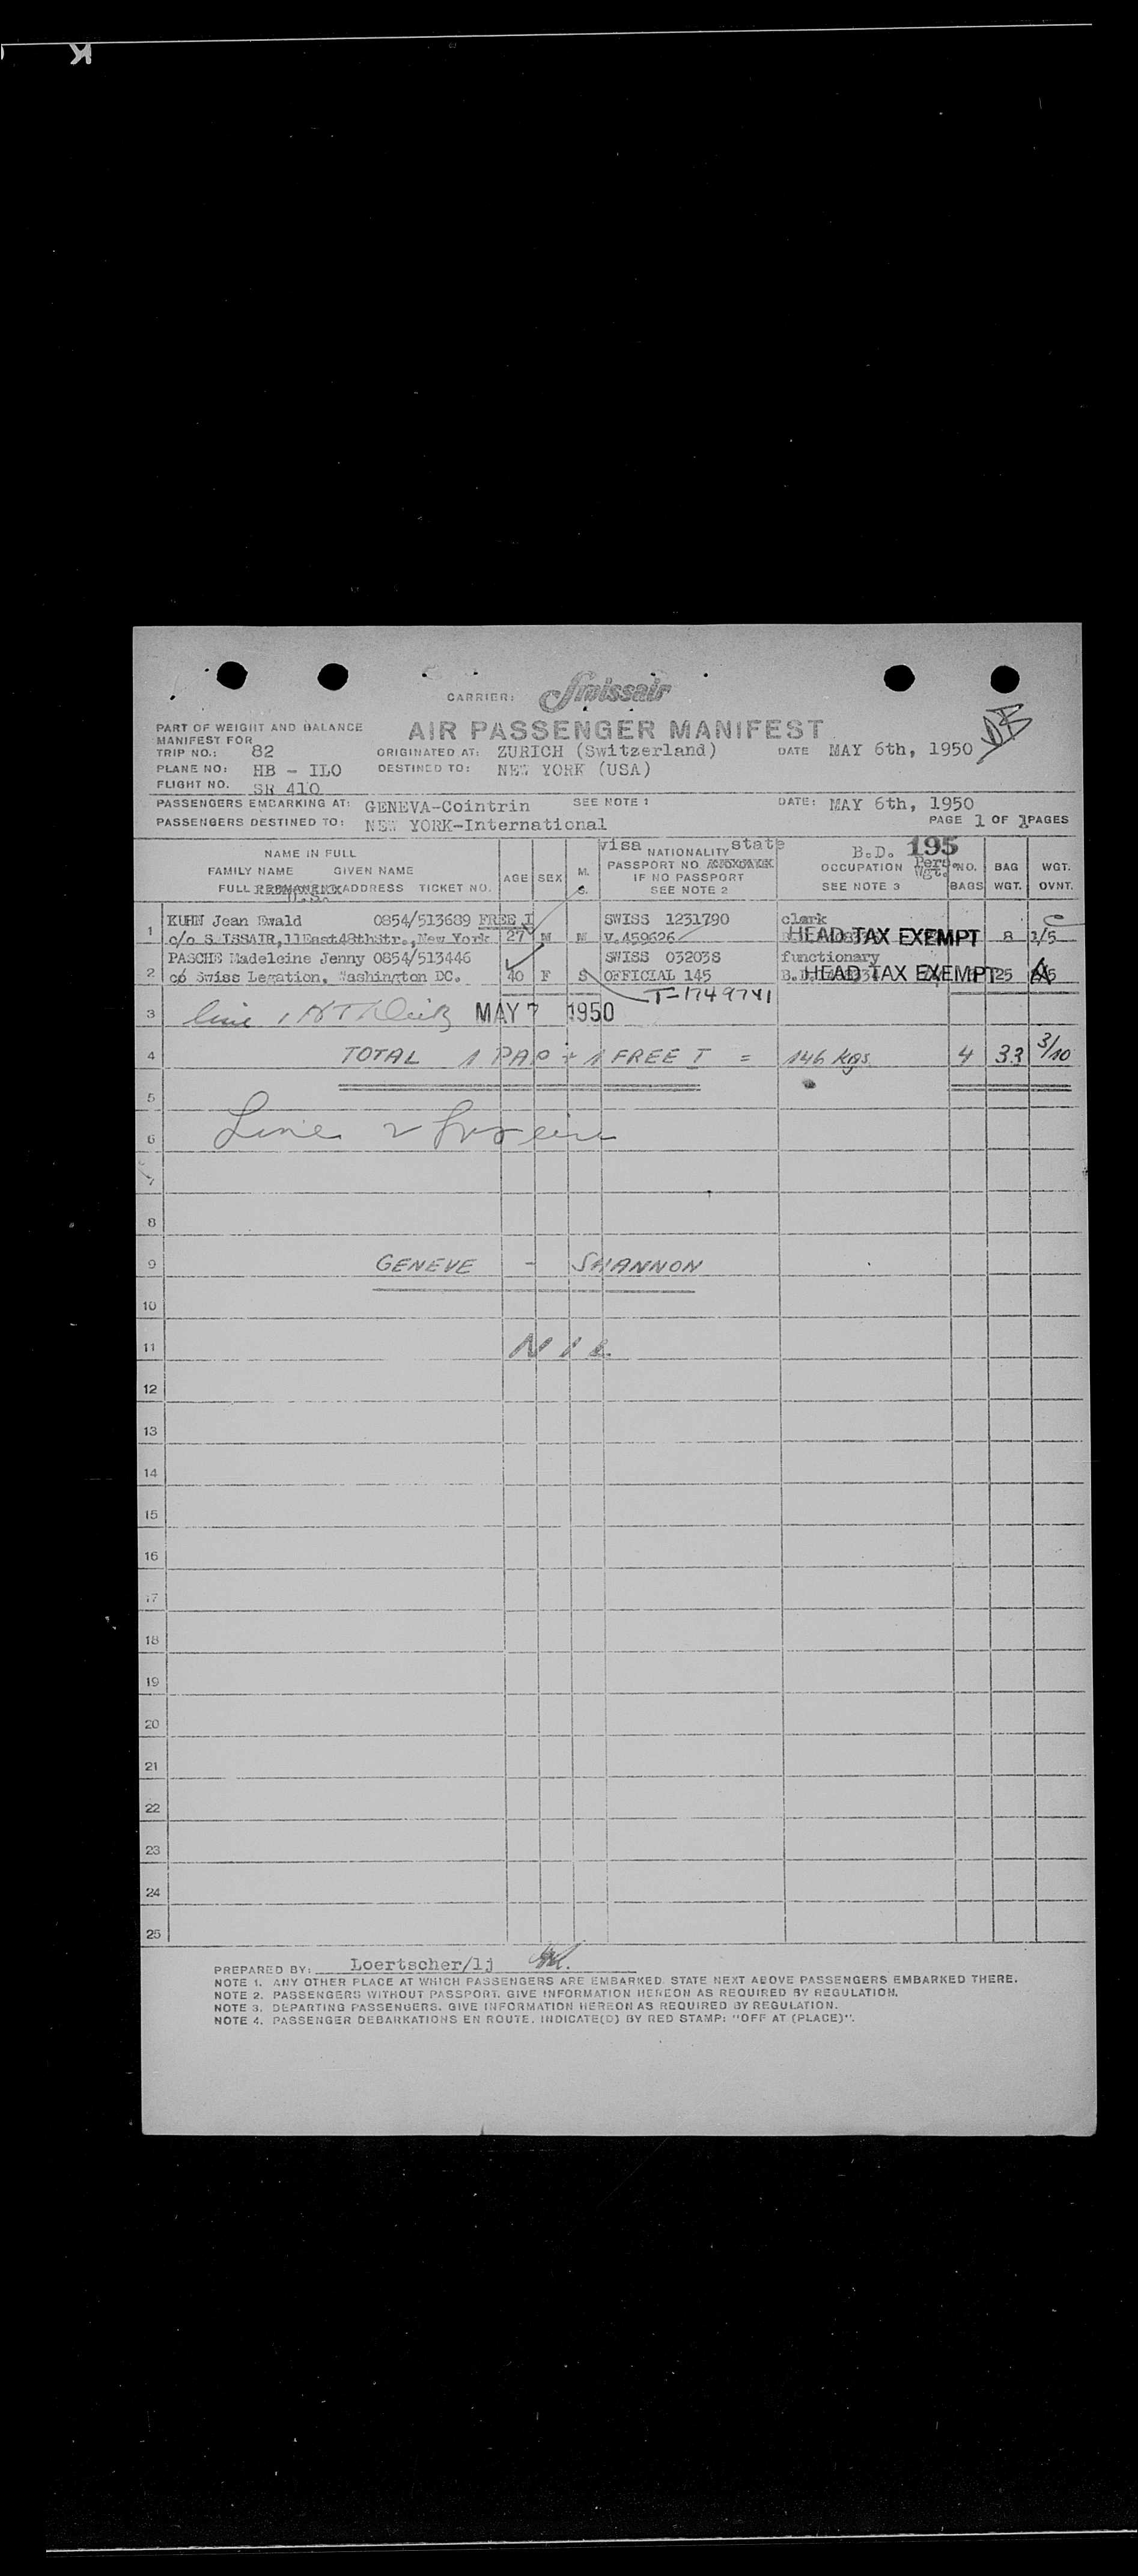 K
CARRIER: Swissair
PART OF WEIGHT AND BALANCE
MANIFEST FOR
AIR PASSENGER MANIFEST
TRIP NO.: 82 ORIGINATED AT: ZURICH (Switzerland) DATE MAY 6th, 1950
PLANE NO: HB - ILO DESTINED TO: NEW YORK (USA)
FLIGHT NO. SR 410
PASSENGERS EMBARKING AT: GENEVA-Cointrin SEE NOTE 1 DATE: MAY 6th, 1950
PASSENGERS DESTINED TO: NEW YORK-International PAGE 1 OF 1 PAGES
visa NATIONALITY state B.D. 195
NAME IN FULL
FAMILY NAME GIVEN NAME AGE SEX M. S. PASSPORT NO OCCUPATION Pers. Wgt. NO. BAGS BAG WGT. WGT. OVNT.
IF NO PASSPORT
FULL PERMANENT ADDRESS TICKET NO. SEE NOTE 2 SEE NOTE 3
U.S.
1 KUHN Jean Ewald 0854/513689 FREE I SWISS 1231790 clerk C
c/o SWISSAIR,11East48thStr.,New York 27 M M V.459626 HEAD TAX EXEMPT 8 1/5
PASCHE Madeleine Jenny 0854/513446 SWISS 03203S functionary
2 co Swiss Legation, Washington DC. 40 F S OFFICIAL 145 B.D. HEAD TAX EXEMPT 25
T-1749741
3 line 1 MAY 7 1950
4 TOTAL 1 PAP + 1 FREE I = 146 kgs. 4 33 3/10
5
6 Line 2
7
8
9 GENEVE - SHANNON
10
11 NIL
12
13
14
15
16
17
18
19
20
21
22
23
24
25
PREPARED BY: Loertscher/lj
NOTE 1. ANY OTHER PLACE AT WHICH PASSENGERS ARE EMBARKED. STATE NEXT ABOVE PASSENGERS EMBARKED THERE.
NOTE 2. PASSENGERS WITHOUT PASSPORT, GIVE INFORMATION HEREON AS REQUIRED BY REGULATION.
NOTE 3. DEPARTING PASSENGERS. GIVE INFORMATION HEREON AS REQUIRED BY REGULATION.
NOTE 4. PASSENGER DEBARKATIONS EN ROUTE. INDICATE(D) BY RED STAMP: "OFF AT (PLACE)".